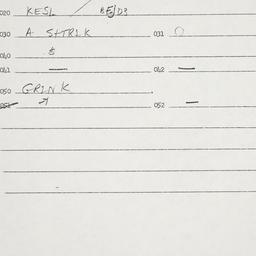 020 KESL / BE/D?
030 A SHTRLK 031
040
041 — 042 —
050 GRINK
051 052 —